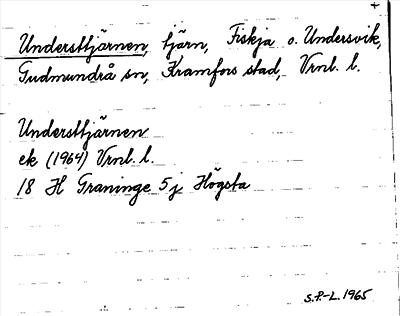 +
Understtjärnen, tjärn, Fiskja o. Undersvik,
Gudmundrå sn, Kramfors stad, Vrnl. l.
Understtjärnen
ek (1964) Vrnl. l.
18 H Graninge 5j Högsta
S.P.-L. 1965